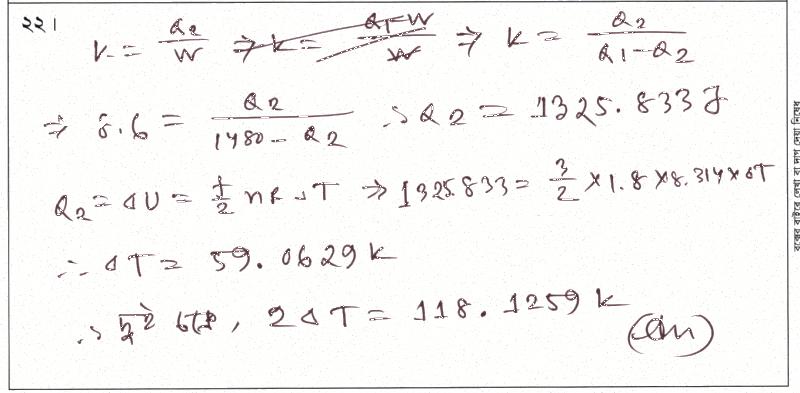 ২২।
K = Q2/W ⇒ K = Q1-W/W ⇒ K = Q2/Q1-Q2
⇒ 8.6 = Q2/1480 - Q2 ∴ Q2 = 1325.833 J
Q2 = ΔU = f/2 nRΔT ⇒ 1325.833 = 3/2 × 1.8 × 8.314 × ΔT
∴ ΔT = 59.0629 K
∴ 2ΔT = 118.1259 K (Ans)
বক্সের বাইরে লেখা বা দাগ দেয়া নিষেধ